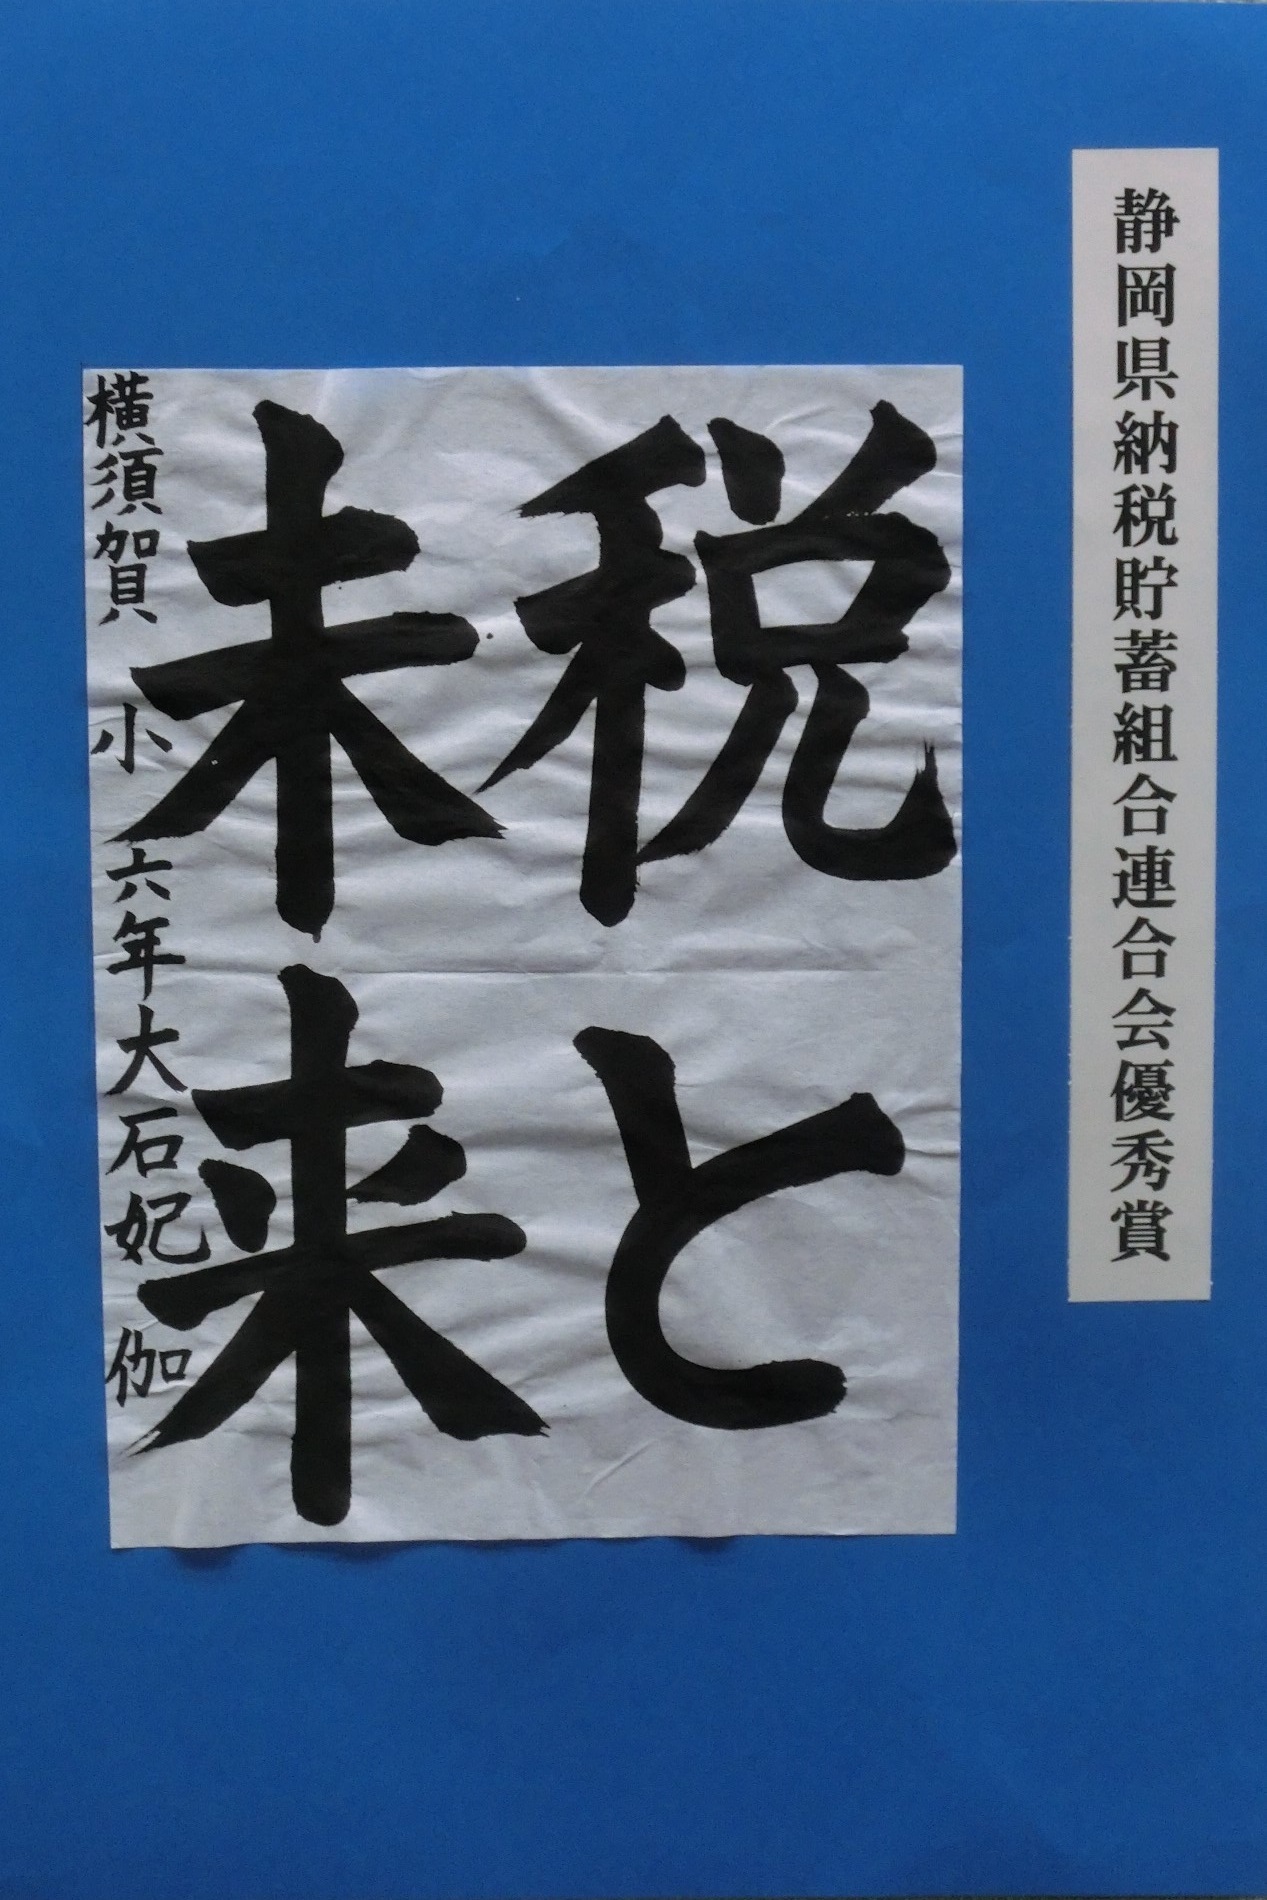 静岡県納税貯蓄組合連合会優秀賞
税と
未来
横須賀小六年大石妃伽